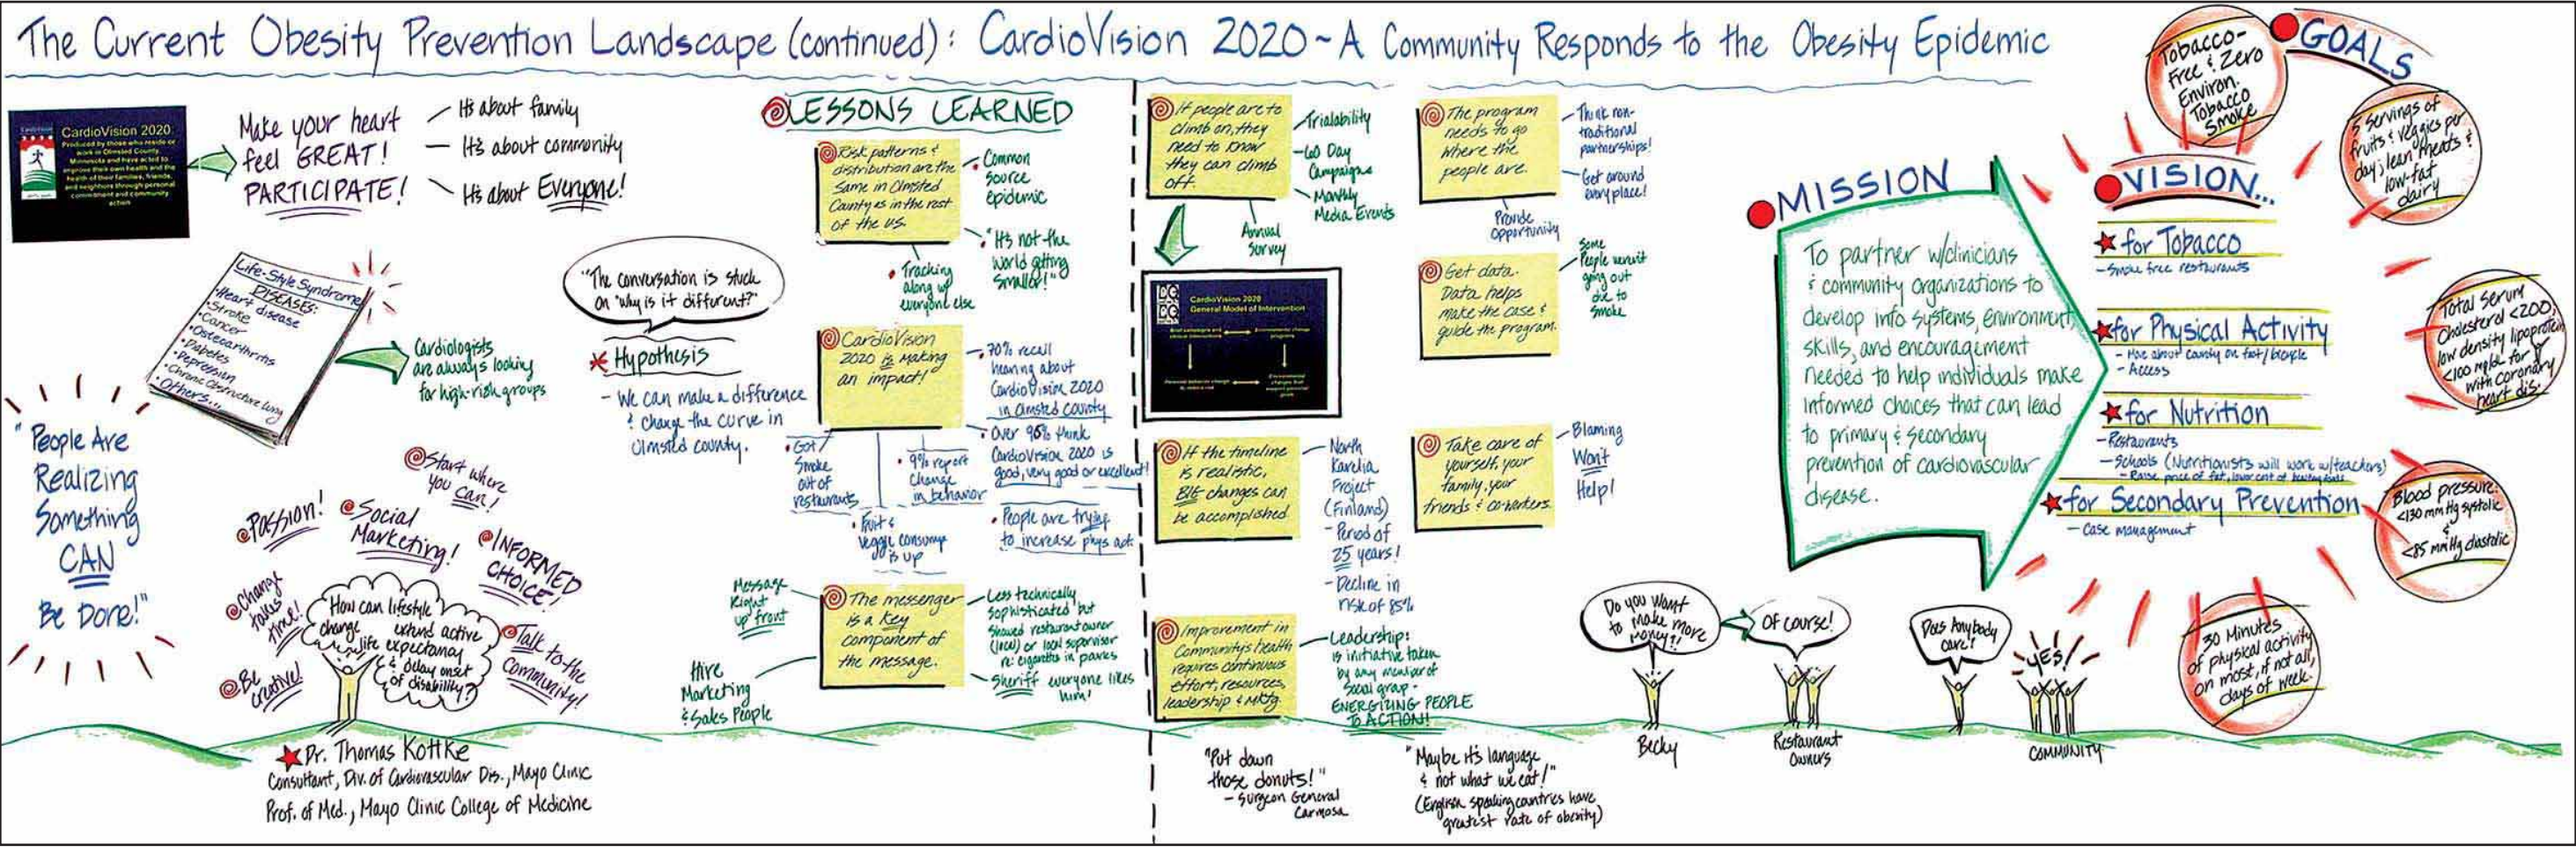 The Current Obesity Prevention Landscape (continued): CardioVision 2020 ~ A Community Responds to the Obesity Epidemic
CardioVision 2020
Produced by those who reside or
work in Olmsted County
Minnesota and have acted to
improve their own health and the
health of their families, friends,
and neighbors through personal
commitment and community
action
Make your heart
feel GREAT!
PARTICIPATE!
- It's about family
- It's about community
- It's about Everyone!
Life-Style Syndrome
DISEASES:
• Heart disease
• Stroke
• Cancer
• Osteoarthritis
• Diabetes
• Depression
• Chronic Obstructive Lung
• Others...
Cardiologists
are always looking
for high-risk groups
"People Are
Realizing
Something
CAN
Be Done!"
Start where
you can!
Passion!
Social
Marketing!
INFORMED
CHOICE!
Change
takes
time!
Be
Creative!
Talk to the
Community!
How can lifestyle
change extend active
life expectancy
& delay onset
of disability?
Dr. Thomas Kottke
Consultant, Div. of Cardiovascular Dis., Mayo Clinic
Prof. of Med., Mayo Clinic College of Medicine
"The conversation is stuck
on "why is it different?"
Hypothesis
- We can make a difference
& change the curve in
Olmsted county.
LESSONS LEARNED
Risk patterns &
distribution are the
same in Olmsted
County as in the rest
of the US.
• Common
Source
epidemic
• "It's not the
world getting
smaller!"
• Tracking
along w/
everyone else
CardioVision
2020 is making
an impact!
• 70% recall
hearing about
CardioVision 2020
in Olmsted County
• Over 90% think
CardioVision 2020 is
good, very good or excellent!
• Got
Smoke
out of
restaurants
• 9% report
change
in behavior
• Fruit &
Veggie consump
is up
• People are trying
to increase phys act.
The messenger
is a key
component of
the message.
Message
Right
up front
Hire
Marketing
& Sales People
- Less technically
sophisticated but
showed restaurant owner
(local) or local supervisor
re: cigarettes in parks
- Sheriff everyone likes
him!
If people are to
climb on, they
need to know
they can climb
off.
- Trialability
- 60 Day
Campaigns
- Monthly
Media Events
Annual
Survey
CardioVision 2020
General Model of Intervention
If the timeline
is realistic,
BIG changes can
be accomplished
- North
Karelia
Project
(Finland)
- Period of
25 years!
- Decline in
risk of 85%
Improvement in
Community's health
requires continuous
effort, resources,
leadership & Mktg.
- Leadership:
is initiative taken
by any member of
Social group -
ENERGIZING PEOPLE
TO ACTION!
The program
needs to go
where the
people are.
- Think non-
traditional
partnerships!
- Get around
every place!
Provide
Opportunity
Get data.
Data helps
make the case &
guide the program.
Some
People weren't
going out
due to
smoke
Take care of
yourself, your
family, your
friends & co-workers.
- Blaming
Won't
Help!
"Put down
those donuts!"
- Surgeon General
Carmosa
"Maybe it's language
& not what we eat!"
(English speaking countries have
greatest rate of obesity)
Do you want
to make more
money?!
Of course!
Does Anybody
care?
YES!
Becky
Restaurant
Owners
COMMUNITY
MISSION
To partner w/clinicians
& community organizations to
develop info systems, environment,
skills, and encouragement
needed to help individuals make
informed choices that can lead
to primary & secondary
prevention of cardiovascular
disease.
VISION...
for Tobacco
- Smoke free restaurants
for Physical Activity
- Move about county on foot/bicycle
- Access
for Nutrition
- Restaurants
- Schools (Nutritionists will work w/teachers)
- Raise price of fat, lower cost of
for Secondary Prevention
- Case management
GOALS
Tobacco-
Free & Zero
Environ.
Tobacco
Smoke
5 servings of
fruits & veggies per
day; lean meats &
low-fat
dairy
Total Serum
Cholesterol <200,
low density lipoprotein
<100 mg/dL for
with coronary
heart dis.
Blood pressure:
<130 mmHg systolic
&
<85 mmHg diastolic
30 Minutes
of physical activity
on most, if not all,
days of week.